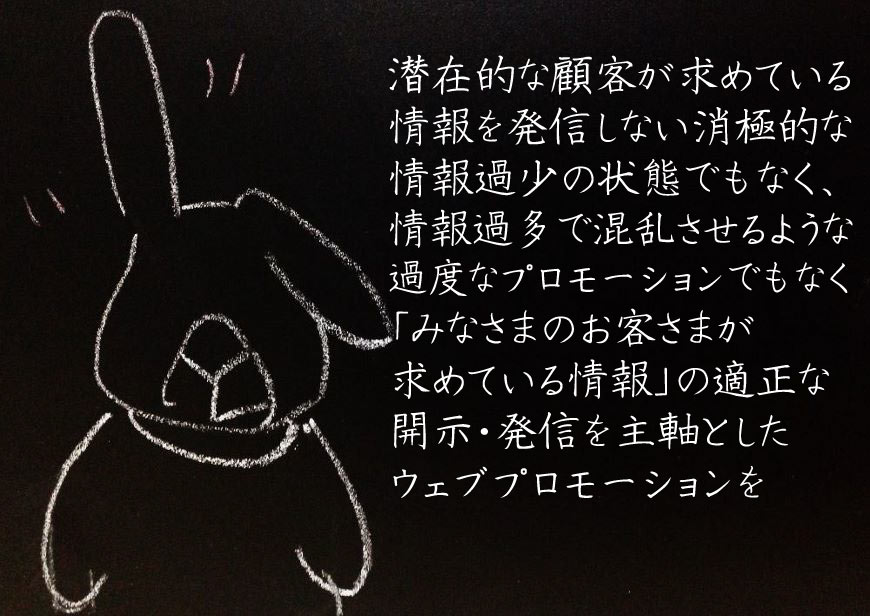 潜在的な顧客が求めている
情報を発信しない消極的な
情報過少の状態でもなく、
情報過多で混乱させるような
過度なプロモーションでもなく
「みなさまのお客さまが
求めている情報」の適正な
開示・発信を主軸とした
ウェブプロモーションを